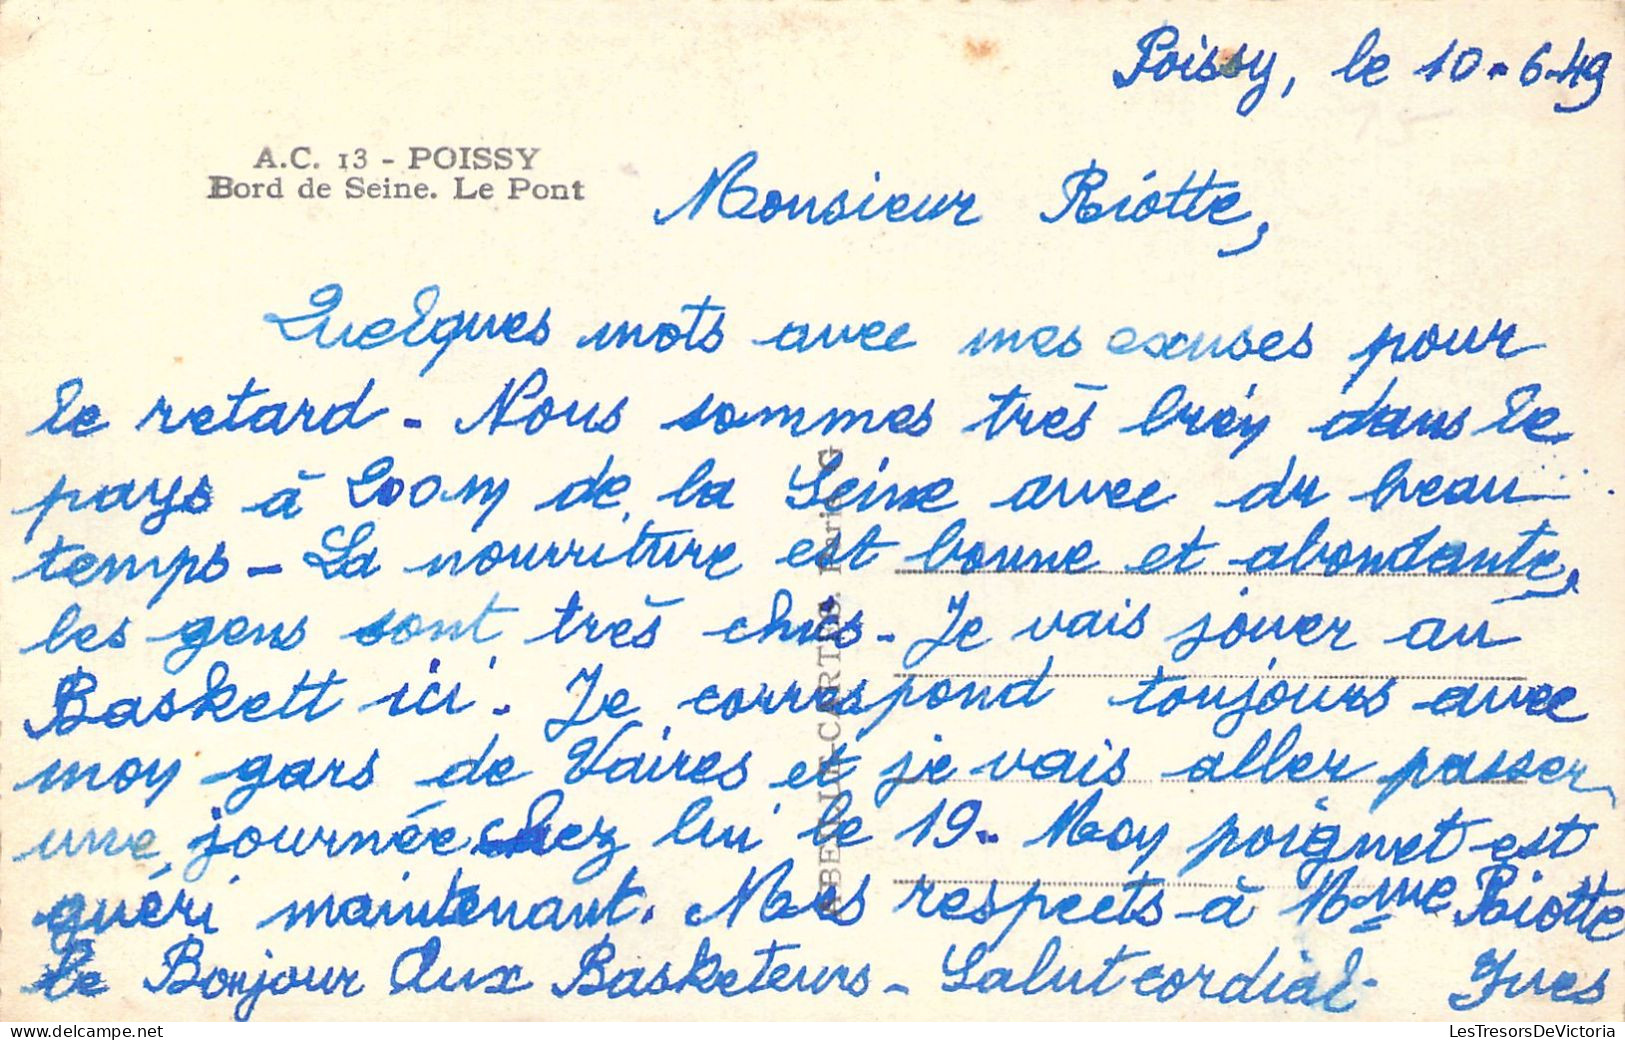 Poissy, le 10-6-49
A.C. 13 - POISSY
Bord de Seine. Le Pont
Monsieur Riotte,
Quelques mots avec mes excuses pour
le retard - Nous sommes très bien dans le
pays à 200m de la Seine avec du beau
temps - La nourriture est bonne et abondante,
les gens sont très chics - Je vais jouer au
Baskett ici. Je correspond toujours avec
mon gars de Vaires et je vais aller passer
une journée chez lui le 19. Mon poignet est
guéri maintenant. Mes respects à Mme Riotte
le Bonjour Aux Basketeurs - Salut cordial Yves
LesTresorsDeVictoria